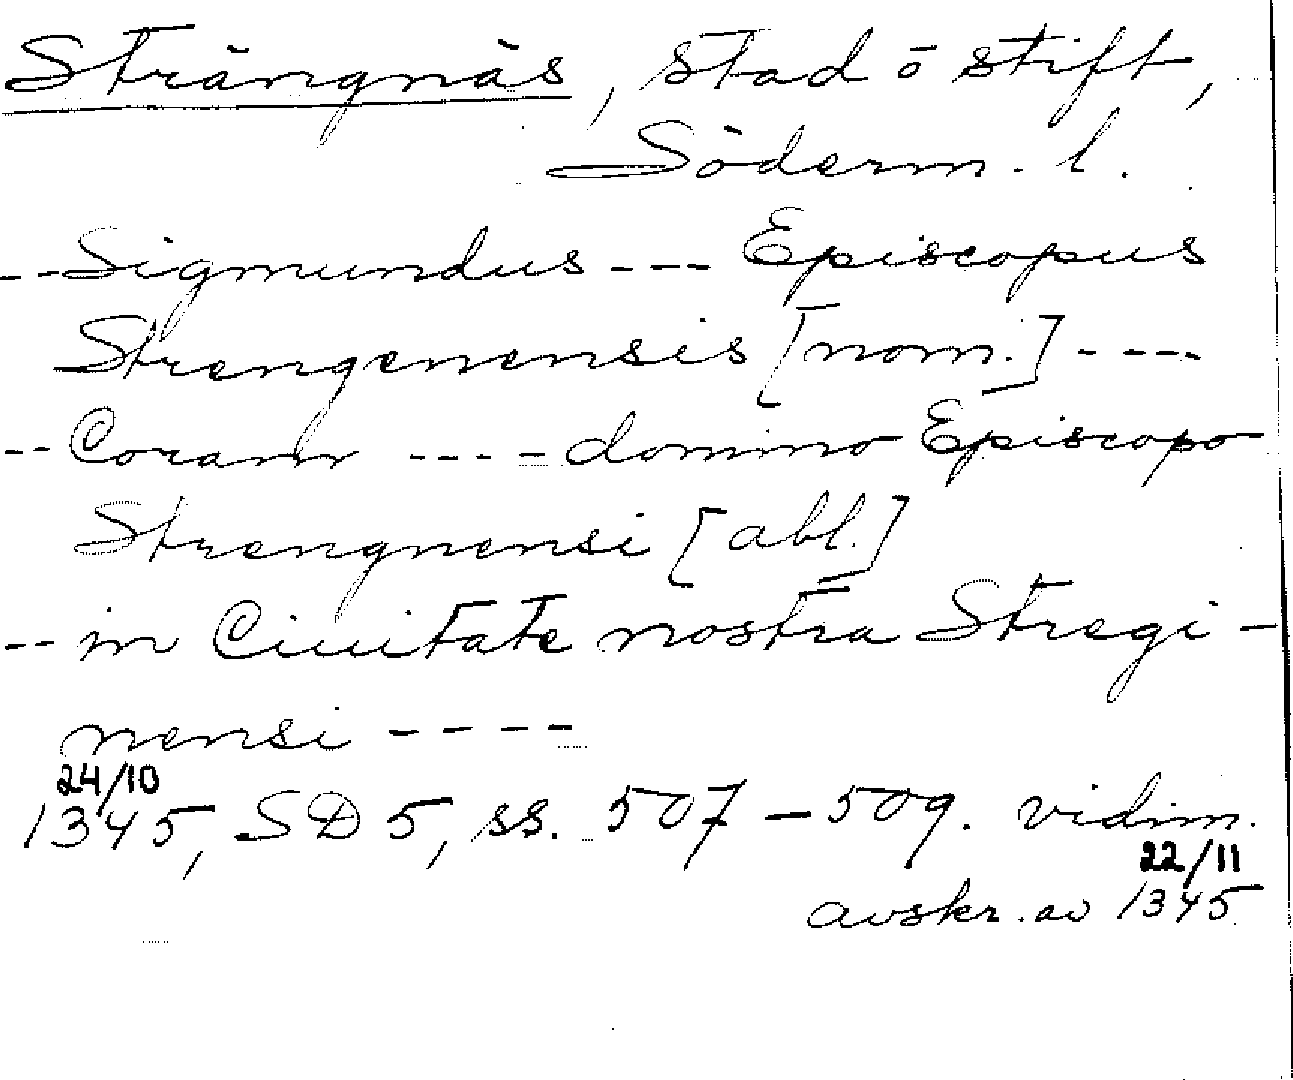 Strängnäs, stad o stift,
Söderm. l.
-- Sigmundus --- Episcopus
Strengenensis [nom.] ----
-- Coram ---- domino Episcopo
Strengnensi [abl.]
-- in Ciuitate nostra Stregi-
nensi ----
24/10
1345, SD 5, ss. 507-509. vidim.
22/11
avskr. av 1345